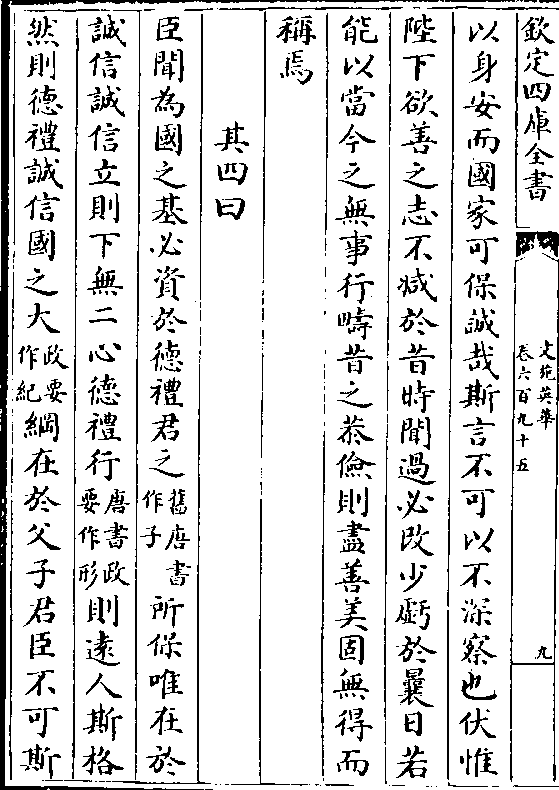 欽定四庫全書
文苑英華
卷六百九十五
九
以身安而國家可保誠哉斯言不可以不深察也伏惟
陛下欲善之志不減於昔時聞過必改少虧於曩日若
能以當今之無事行疇昔之恭儉則盡善美固無得而
稱焉
其四曰
臣聞為國之基必資於德禮君之舊唐書作子所保唯在於
誠信誠信立則下無二心德禮行唐書政要作形則逺人斯格
然則德禮誠信國之大政要作紀綱在於父子君臣不可斯